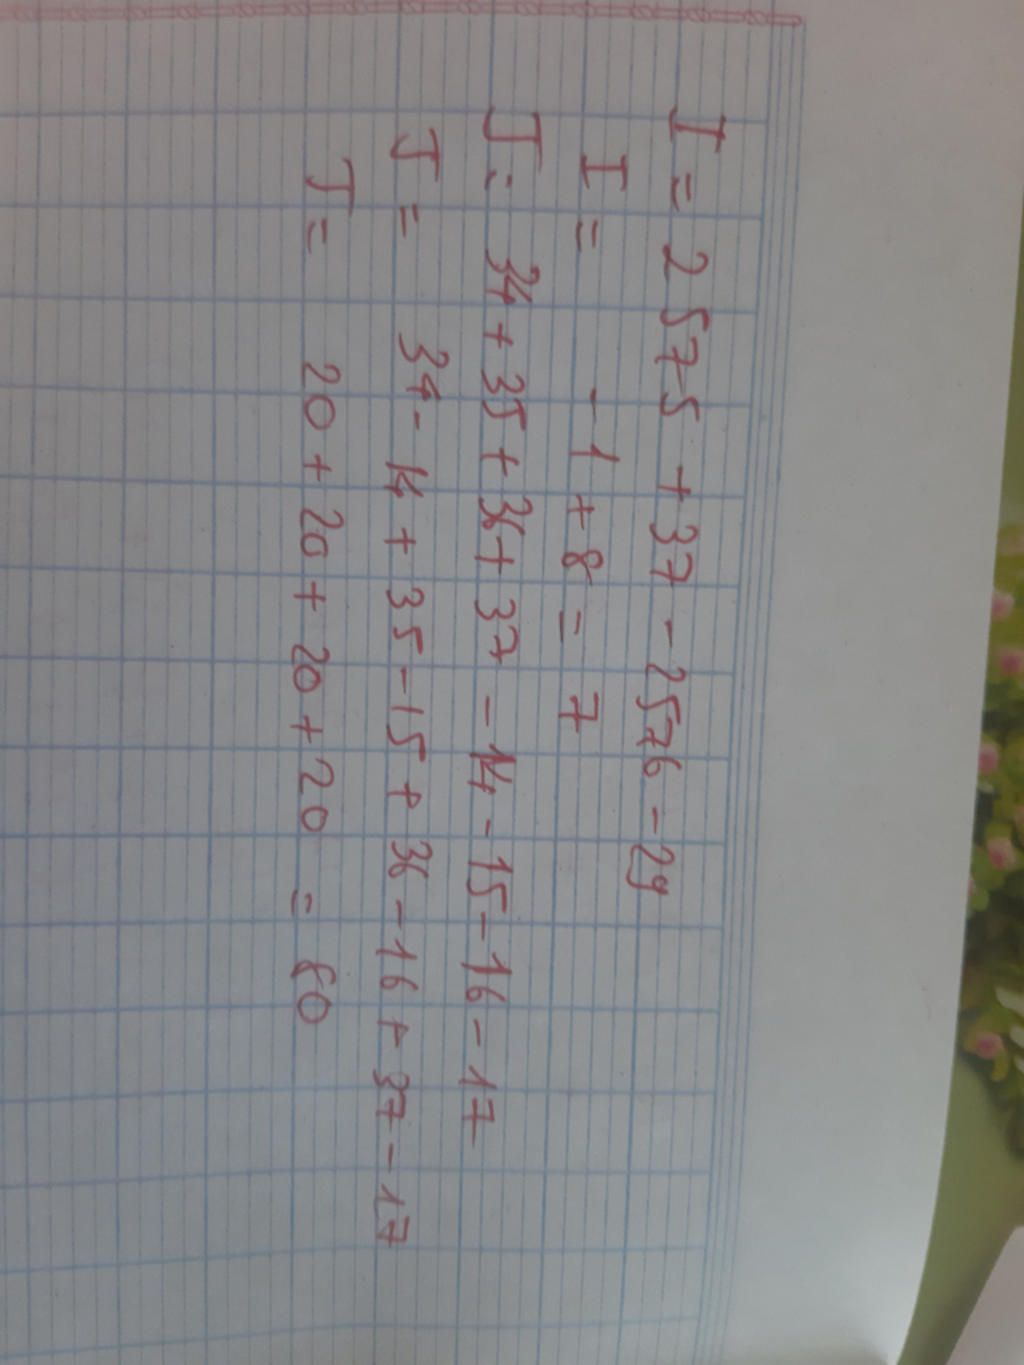 I = 2575 + 37 - 2576 - 29
I = - 1 + 8 = 7
J = 34 + 35 + 36 + 37 - 14 - 15 - 16 - 17
J = 34 - 14 + 35 - 15 + 36 - 16 + 37 - 17
J = 20 + 20 + 20 + 20 = 80